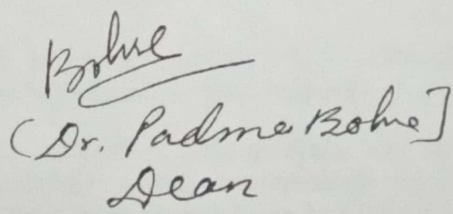 Bohre
(Dr. Padma Bohre]
Dean